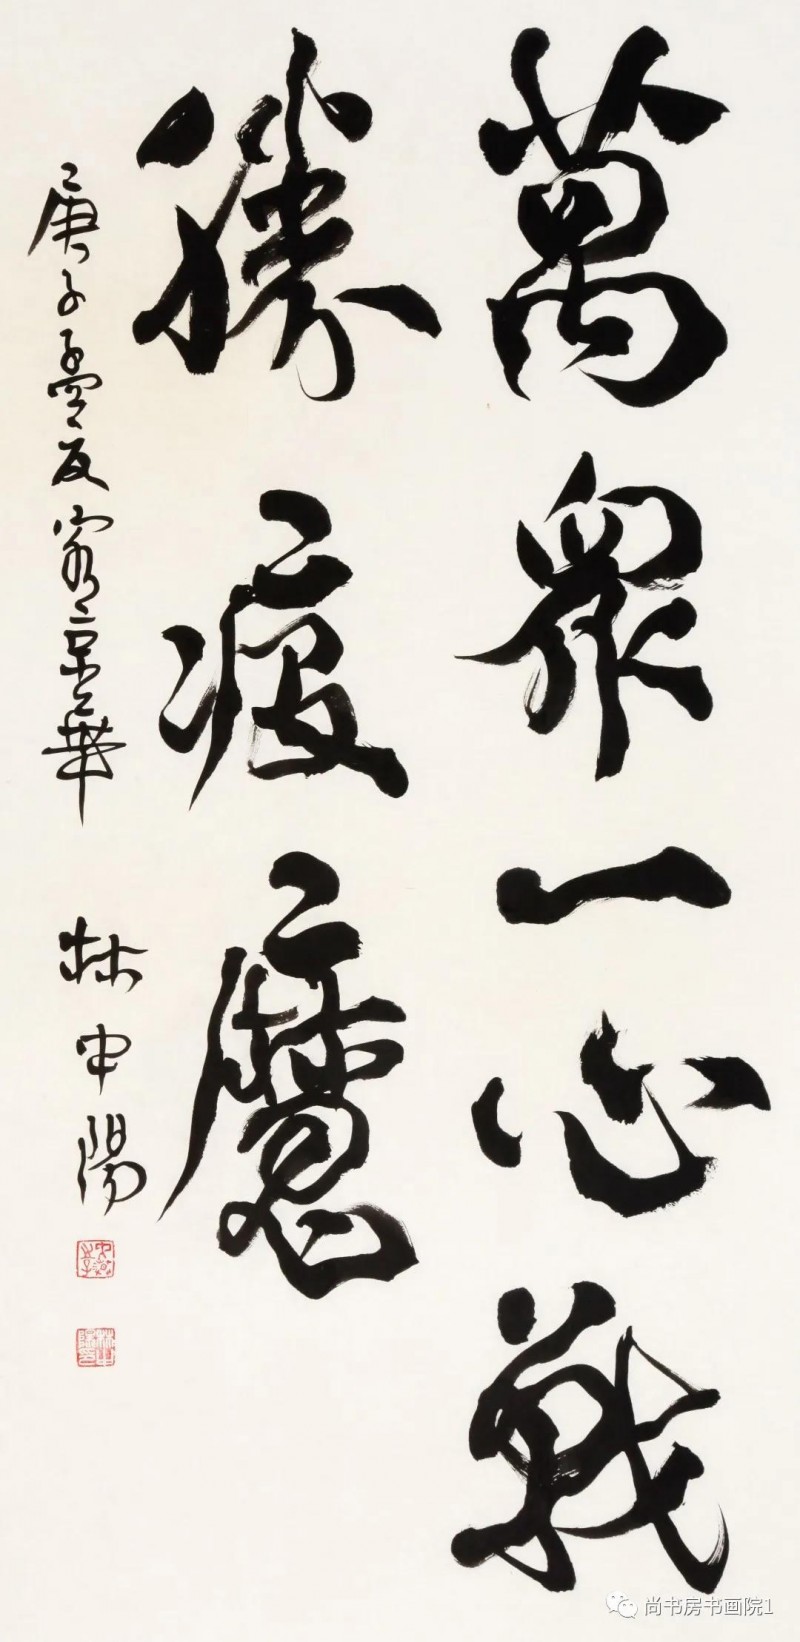 萬眾一心戰
勝疫魔
庚子孟夏客京華 林中陽
尚书房书画院1